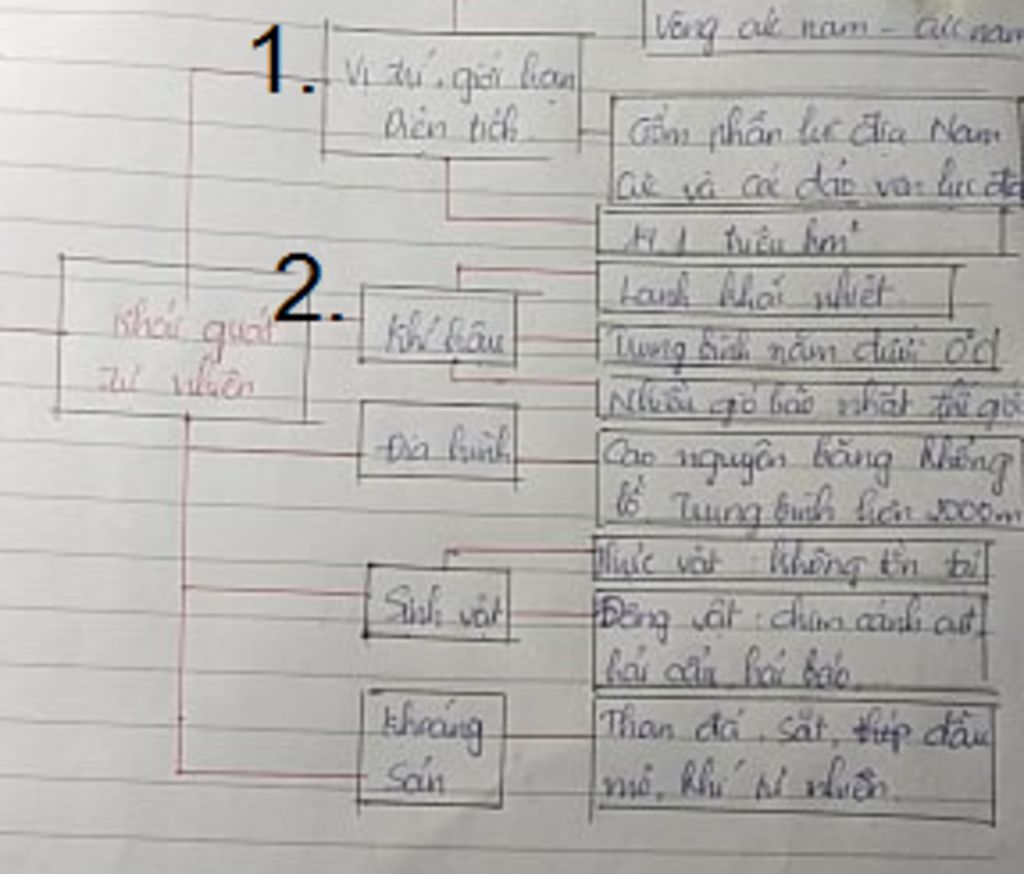 Vòng cực nam - cực nam
1.
Vị trí, giới hạn
Diện tích
Gồm phần lục địa Nam
cực và các đảo ven lục địa
14,1 triệu km²
2.
Khái quát
tự nhiên
Khí hậu
Lạnh khắc nhiệt
Trung bình năm dưới 0°C
Nhiều gió bão nhất thế giới
Địa hình
Cao nguyên băng khổng
lồ. Trung bình hơn 2000m
Sinh vật
Thực vật: không tồn tại
Động vật: chim cánh cụt
hải cẩu, hải báo
Khoáng
sản
Than đá, sắt, thép dầu
mỏ, khí tự nhiên.